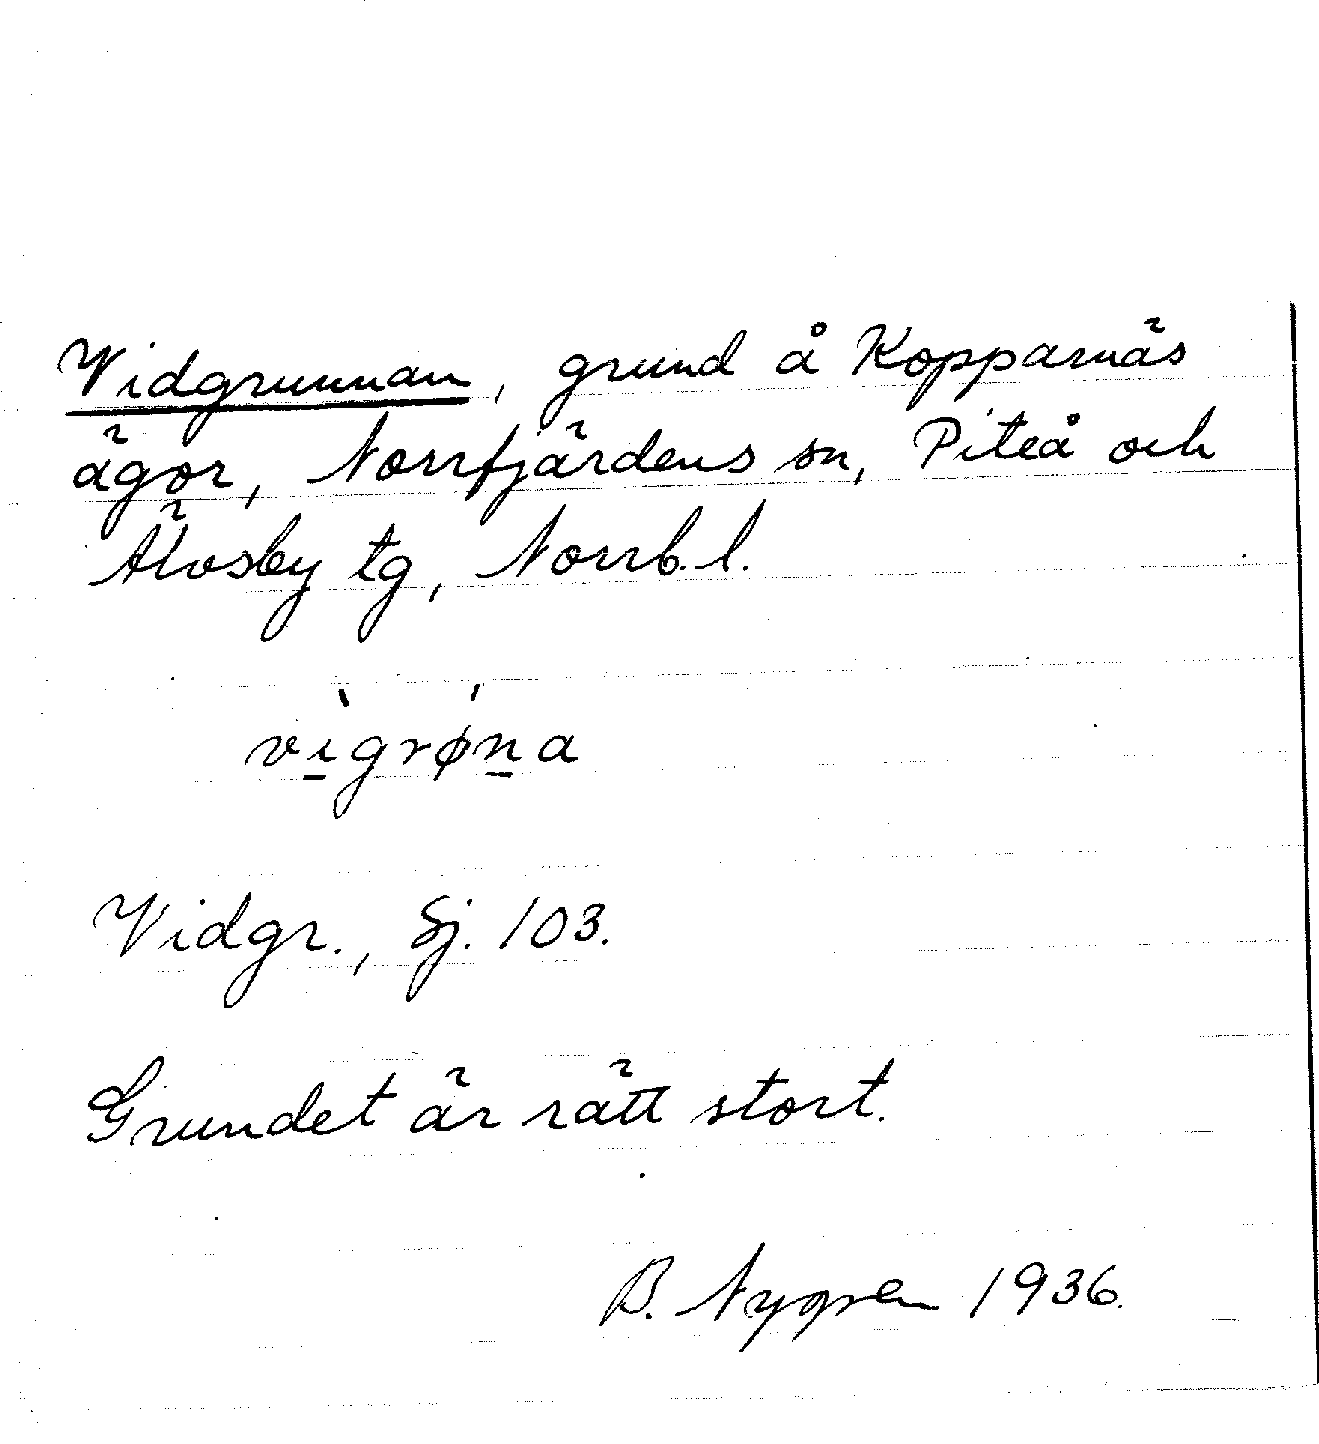 Vidgrunnan, grund å Kopparnäs
ägor, Norrfjärdens sn, Piteå och
Älvsby tg, Norrb. l.
vìgrǿna
Vidgr., Sj. 103.
Grundet är rätt stort.
B. Nygren 1936.